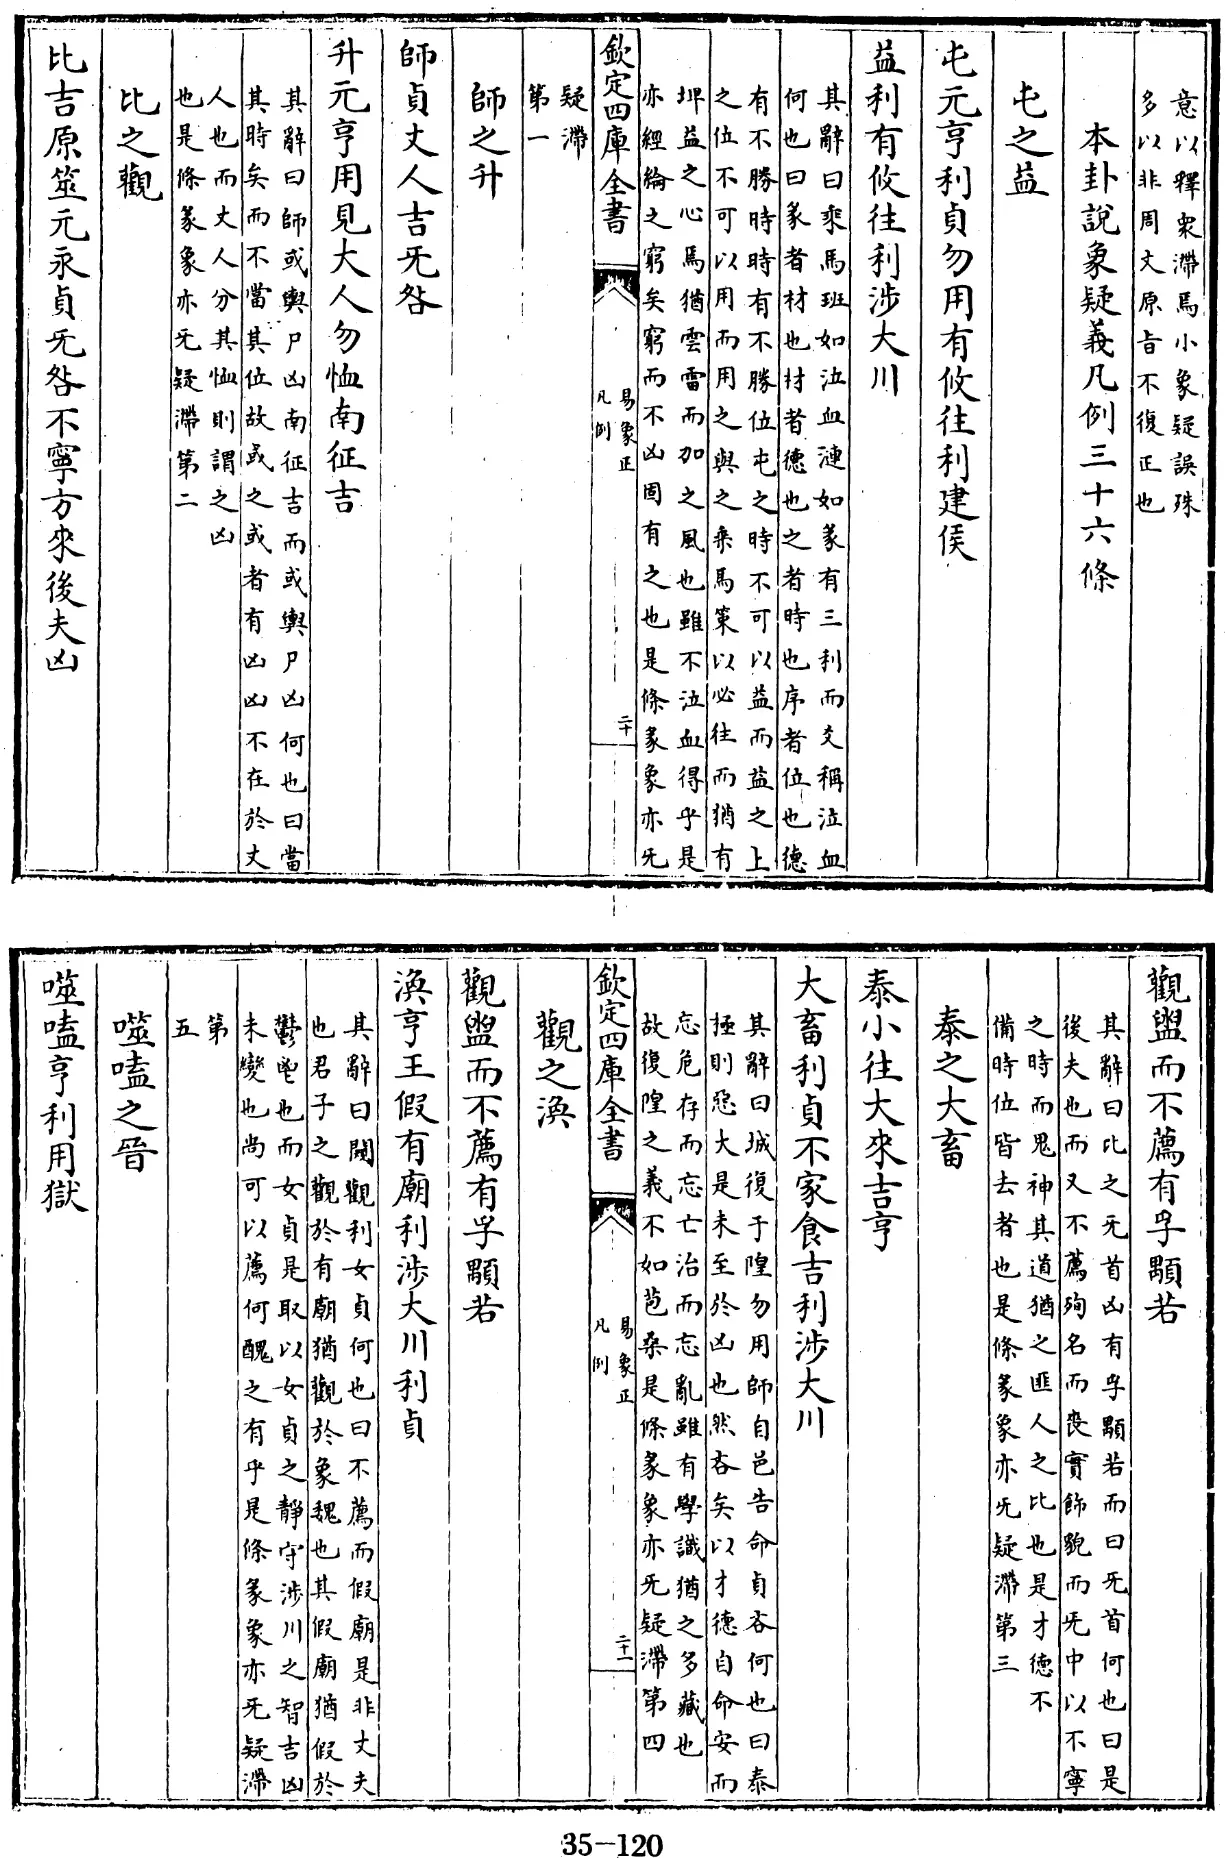 意以釋衆滯焉小象疑誤殊
多以非周文原旨不復正也
本卦說象疑義凡例三十六條
屯之益
屯元亨利貞勿用有攸往利建侯
益利有攸往利涉大川
其辭曰乘馬班如泣血漣如彖有三利而爻稱泣血
何也曰彖者材也材者德也之者時也序者位也德
有不勝時時有不勝位屯之時不可以益而益之上
之位不可以用而用之與之乘馬策以必往而猶有
埤益之心焉猶雲雷而加之風也雖不泣血得乎是
亦經綸之窮矣窮而不凶固有之也是條彖象亦无
欽定四庫全書
易象正
凡例
二十
疑滯
第一
師之升
師貞丈人吉无咎
升元亨用見大人勿恤南征吉
其辭曰師或輿尸凶南征吉而或輿尸凶何也曰當
其時矣而不當其位故或之或者有凶凶不在於丈
人也而丈人分其恤則謂之凶
也是條彖象亦无疑滯第二
比之觀
比吉原筮元永貞无咎不寧方來後夫凶
觀盥而不薦有孚顒若
其辭曰比之无首凶有孚顒若而曰无首何也曰是
後夫也而又不薦殉名而喪實飾貌而无中以不寧
之時而鬼神其道猶之匪人之比也是才德不
備時位皆去者也是條彖象亦无疑滯第三
泰之大畜
泰小往大來吉亨
大畜利貞不家食吉利涉大川
其辭曰城復于隍勿用師自邑告命貞吝何也曰泰
極則惡大是未至於凶也然吝矣以才德自命安而
忘危存而忘亡治而忘亂雖有學識猶之多藏也
故復隍之義不如苞桑是條彖象亦无疑滯第四
欽定四庫全書
易象正
凡例
二十一
觀之渙
觀盥而不薦有孚顒若
渙亨王假有廟利涉大川利貞
其辭曰闚觀利女貞何也曰不薦而假廟是非丈夫
也君子之觀於有廟猶觀於象魏也其假廟猶假於
鬱鬯也而女貞是取以女貞之靜守涉川之智吉凶
未變也尚可以薦何醜之有乎是條彖象亦无疑滯
第
五
噬嗑之晉
噬嗑亨利用獄
35-120